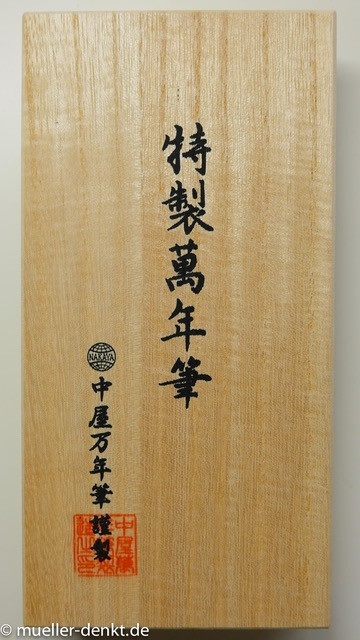 特製萬年筆
NAKAYA
中屋万年筆謹製
© mueller-denkt.de